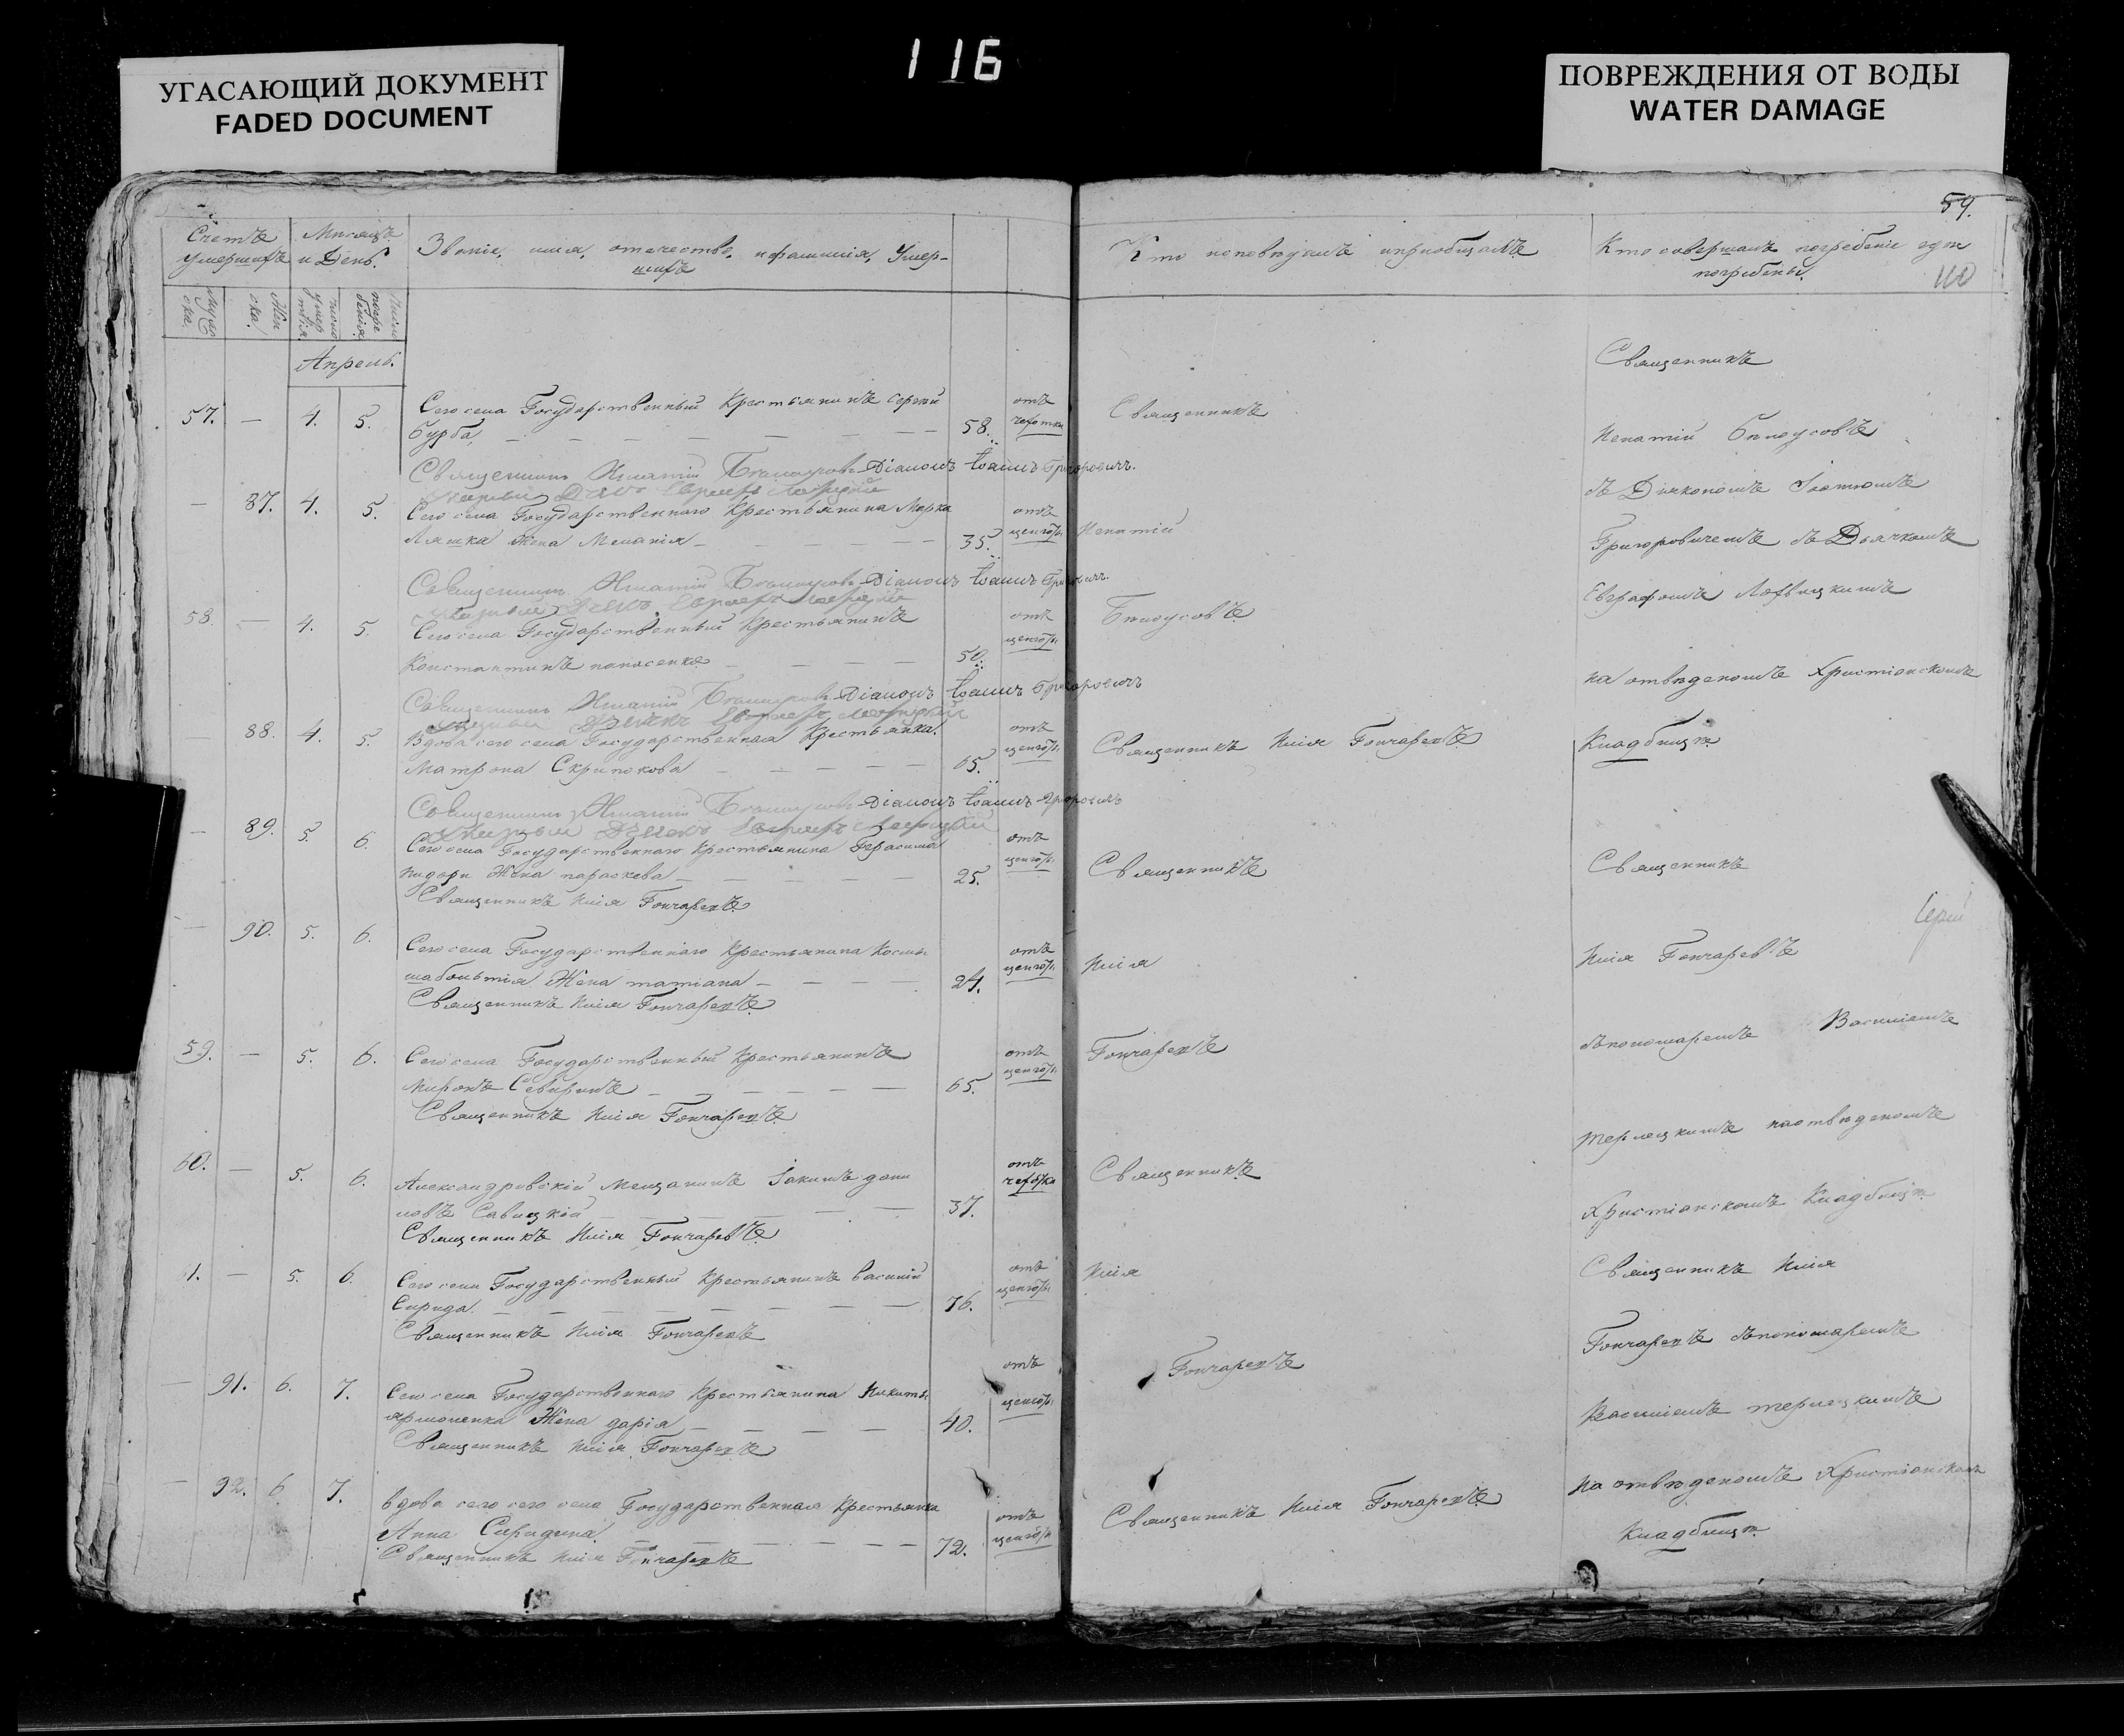 116
УГАСАЮЩИЙ ДОКУМЕНТ
FADED DOCUMENT
ПОВРЕЖДЕНИЯ ОТ ВОДЫ
WATER DAMAGE
59.
Счетъ умершихъ
Мѣсяцъ и День.
Званіе, имя, отечество, и фамилія, Умер-
шихъ
Кто исповѣдывалъ и приобщалъ
Кто совершалъ погребеніе и гдѣ
погребены.
110
Апрель.
57. — 4. 5. Сего села Государственный Крестьянинъ Сергій
Бурба, 58. отъ чехотки
Священникъ Игнатій Бѣлоусовъ Діаконъ Іоаннъ Григоровичъ.
— 87. 4. 5. Сего села Государственнаго Крестьянина Марка
Ляшка Жена Меланія 35. отъ ценготы
Священникъ Игнатій Бѣлоусовъ Діаконъ Іоаннъ Григоровичъ.
58. — 4. 5. Сего села Государственный Крестьянинъ
Константинъ 50. отъ ценготы
Священникъ Игнатій Бѣлоусовъ Діаконъ Іоаннъ Григоровичъ
— 88. 4. 5. Вдова сего села Государственная Крестьянка
Матрона Скрипокова 65. отъ ценготы
Священникъ Игнатій Бѣлоусовъ Діаконъ Іоаннъ Григоровичъ
— 89. 5. 6. Сего села Государственнаго Крестьянина Герасима
Жена параскева 25. отъ ценготы
Священникъ Илія Гончаревъ
— 90. 5. 6. Сего села Государственнаго Крестьянина Космы
Жена татіана 24. отъ ценготы
Священникъ Илія Гончаревъ
59. — 5. 6. Сего села Государственный Крестьянинъ
Миронъ Северинъ 65. отъ ценготы
Священникъ Илія Гончаревъ
60. — 5. 6. Александровскій Мещанинъ Іакимъ дани
ловъ Савицкій 37. отъ чехотки
Священникъ Илія Гончаревъ
61. — 5. 6. Сего села Государственный Крестьянинъ василій
Сирида 76. отъ ценготы
Священникъ Илія Гончаревъ
— 91. 6. 7. Сего села Государственнаго Крестьянина Никиты
Жена дарія 40. отъ ценготы
Священникъ Илія Гончаревъ
— 92. 6. 7. вдова сего сего села Государственная Крестьянка
Анна Сиридина 72. отъ ценготы
Священникъ Илія Гончаревъ
Священникъ
Игнатій
Бѣлоусовъ
Священникъ Илія Гончаревъ
Священникъ
Илія
Гончаревъ
Священникъ
Илія
Гончаревъ
Священникъ Илія Гончаревъ
Священникъ
Игнатій Бѣлоусовъ
съ Діакономъ Іоанномъ
Григоровичемъ съ Дьячкомъ
Евграфомъ Лохвицкимъ
на отведеномъ Христіанскомъ
Кладбищѣ
Священникъ
Илія Гончаревъ
съ пономаремъ Василіемъ
терлецкимъ на отведеномъ
Христіанскомъ Кладбищѣ
Священникъ Илія
Гончаревъ съ пономаремъ
Василіемъ терлецкимъ
На отведеномъ Христіанскомъ
Кладбищѣ